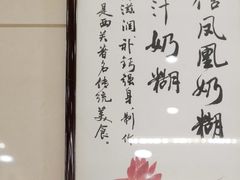 凤凰奶糊
汁奶糊
滋润补钙强身,制作
是西关著名传统美食。